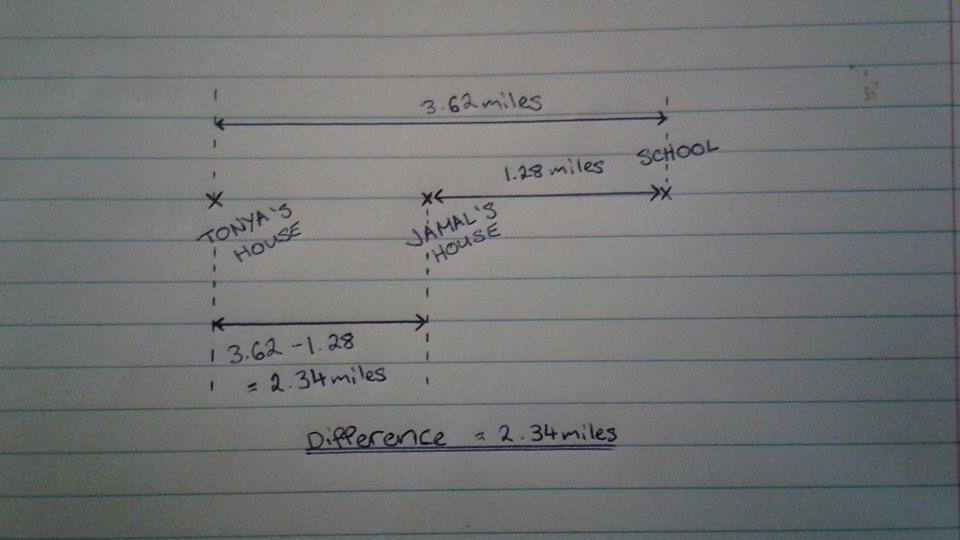 3.62 miles
1.28 miles
SCHOOL
TONYA'S
HOUSE
JAMAL'S
HOUSE
3.62 - 1.28
= 2.34 miles
Difference = 2.34 miles